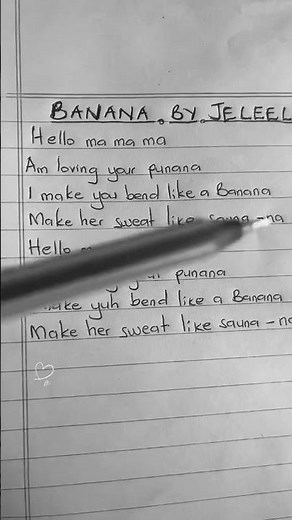 BANANA BY JELEEL
Hello ma ma ma
Am loving your punana
I make you bend like a Banana
Make her sweat like sauna -na
Hello
punana
make yuh bend like a Banana
Make her sweat like sauna - na